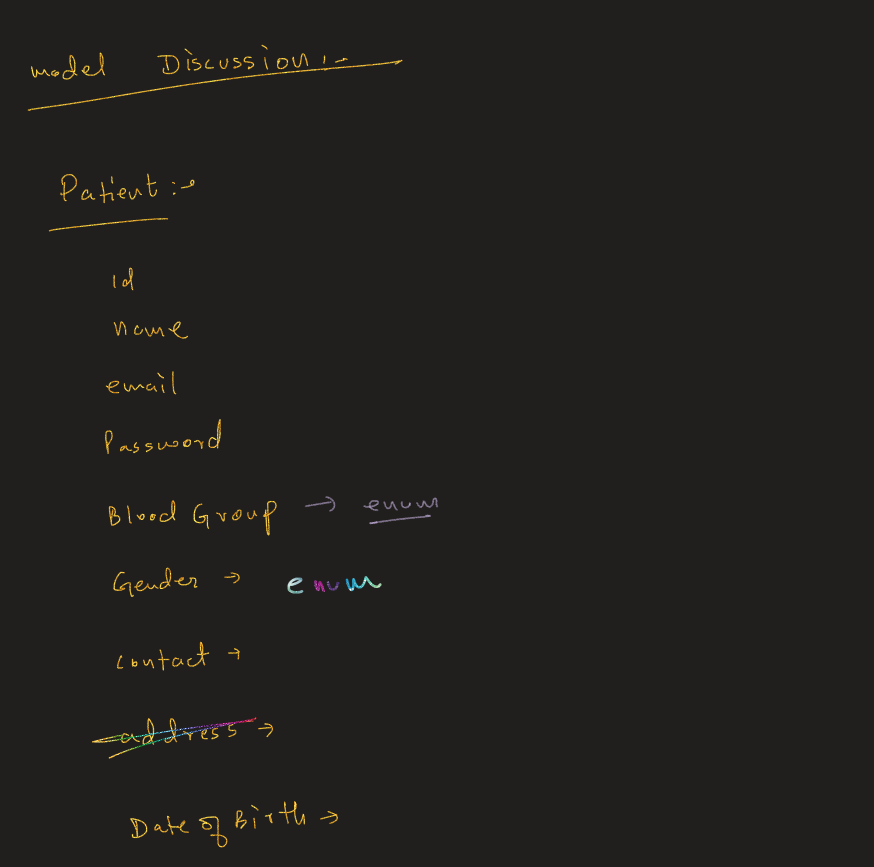 model Discussion :-
Patient :-
id
name
email
Password
Blood Group → enum
Gender → enum
contact →
address →
Date of Birth →